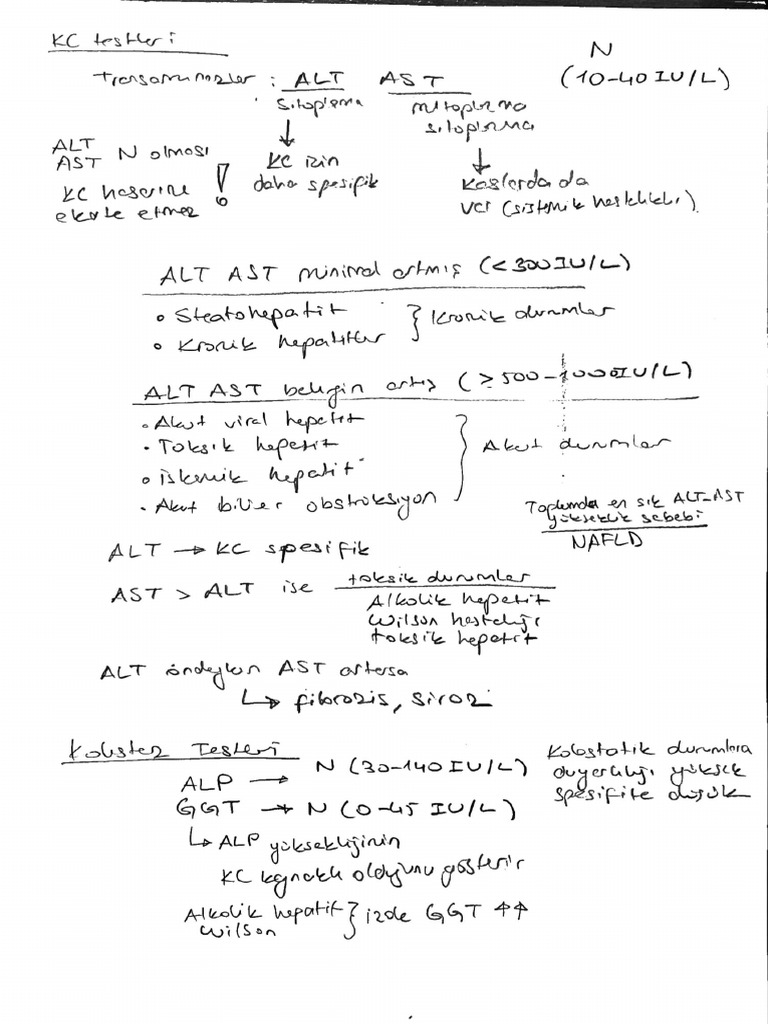 KC testleri
N
Transaminazlar : ALT AST (10-40 IU/L)
sitoplazma
mitoplazma
sitoplazma
ALT
AST N olması
KC hasarını
ekarte etmez !
KC için
daha spesifik
Kaslarda da
var (sistemik hastalıklı)
ALT AST minimal artmış (< 300 IU/L)
• Steatohepatit
• Kronik hepatitler
} Kronik durumlar
ALT AST belirgin artış (≥ 500-1000 IU/L)
• Akut viral hepatit
• Toksik hepatit
• iskemik hepatit
• Akut bilier obstrüksiyon
} Akut durumlar
Toplumda en sık ALT-AST
yükseklik sebebi
NAFLD
ALT → KC spesifik
AST > ALT ise toksik durumlar
Alkolik hepatit
Wilson hastalığı
toksik hepatit
ALT öndeyken AST artarsa
↳ fibrozis, siroz
Kolestaz Testleri
ALP → N (30-140 IU/L)
GGT → N (0-45 IU/L)
Kolestatik durumlara
duyarlılığı yüksek
spesifite düşük
↳ ALP yüksekliğinin
KC kaynaklı olduğunu gösterir
Alkolik hepatit
Wilson
} izde GGT ↑↑